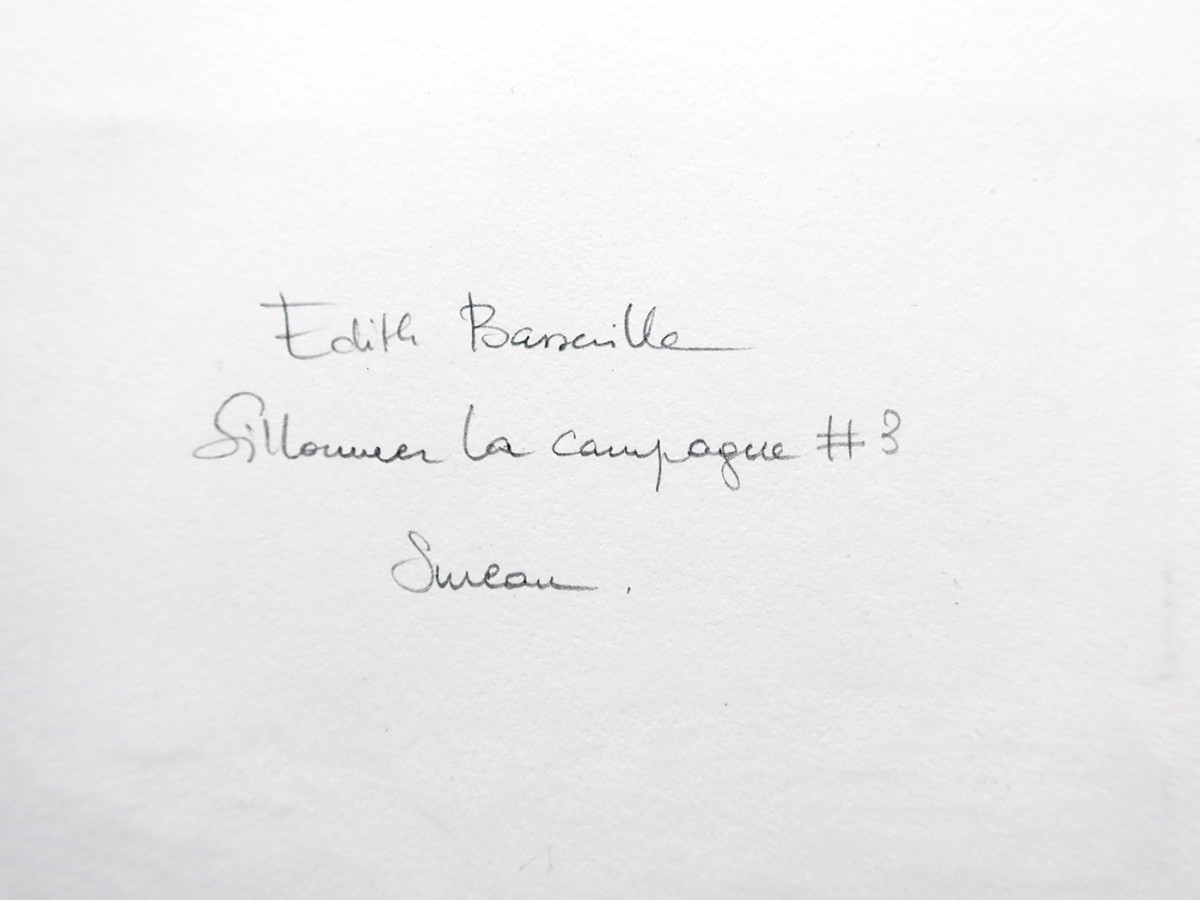 Edith Basseville
Sillonner la campagne #3
Sureau.